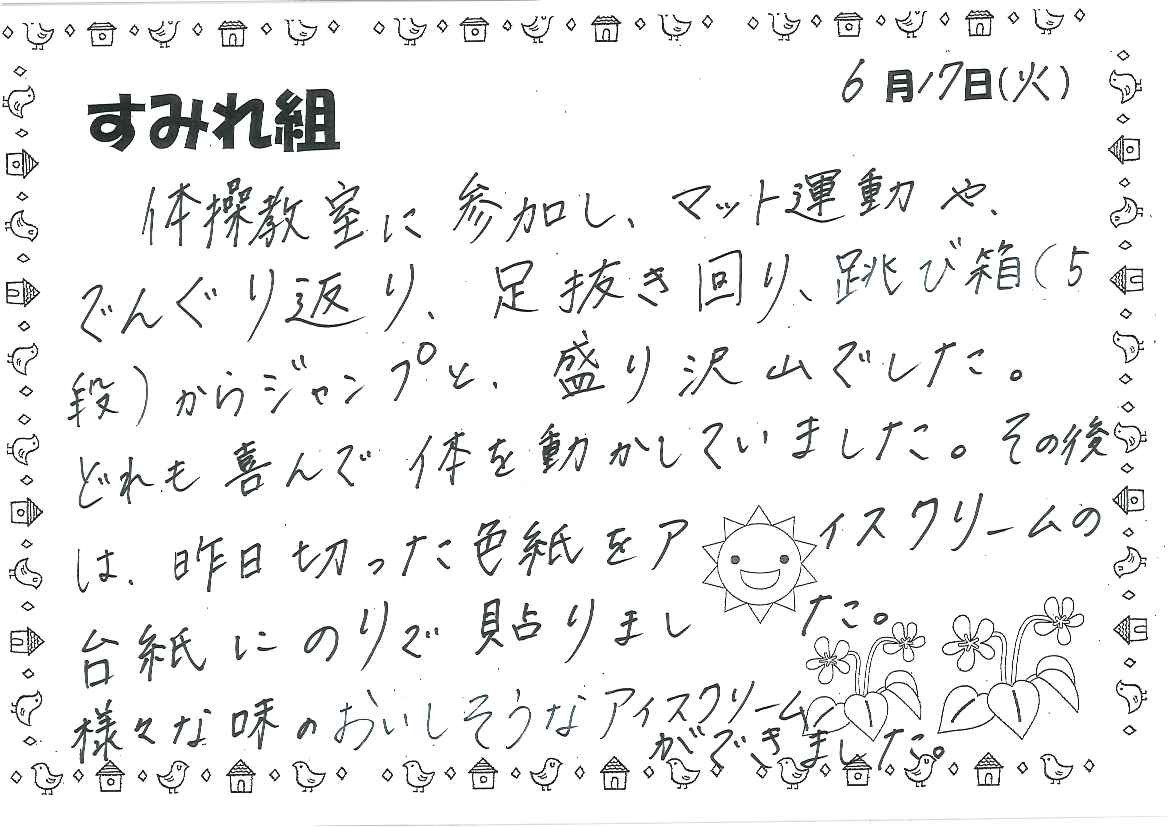 6月17日(火)
すみれ組
体操教室に参加し、マット運動や、
でんぐり返り、足抜き回り、跳び箱(5
段)からジャンプと、盛り沢山でした。
どれも喜んで体を動かしていました。その後
は、昨日切った色紙をアイスクリームの
台紙にのりで貼りました。
様々な味のおいしそうなアイスクリーム
ができました。